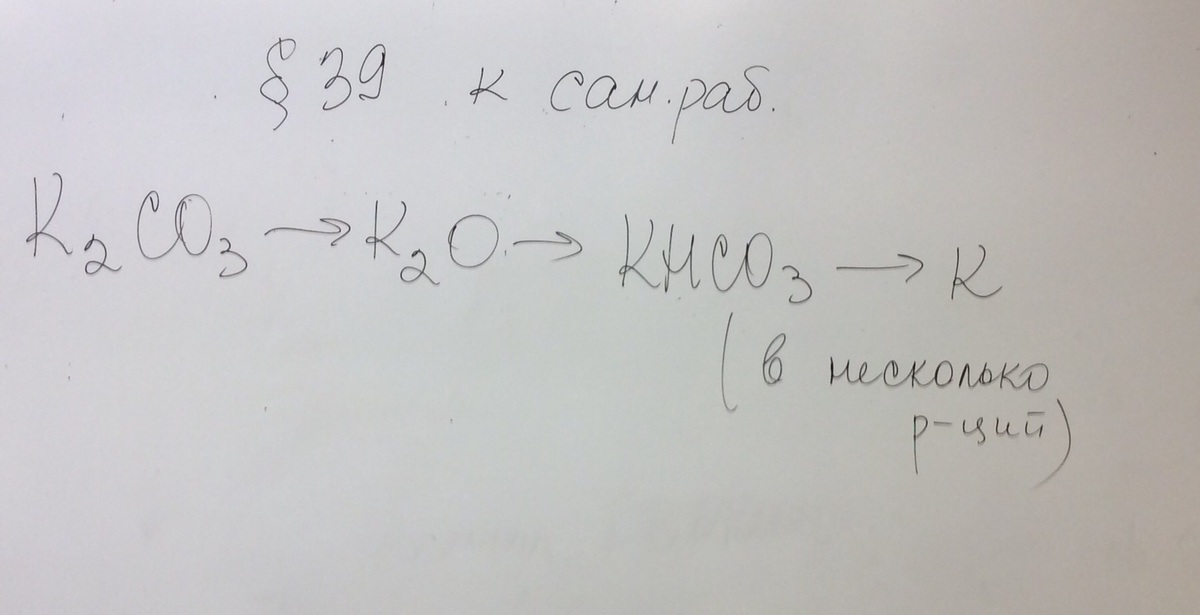 § 39 к сам.раб.
K₂CO₃ → K₂O → KHCO₃ → K
(в несколько
р-ций)